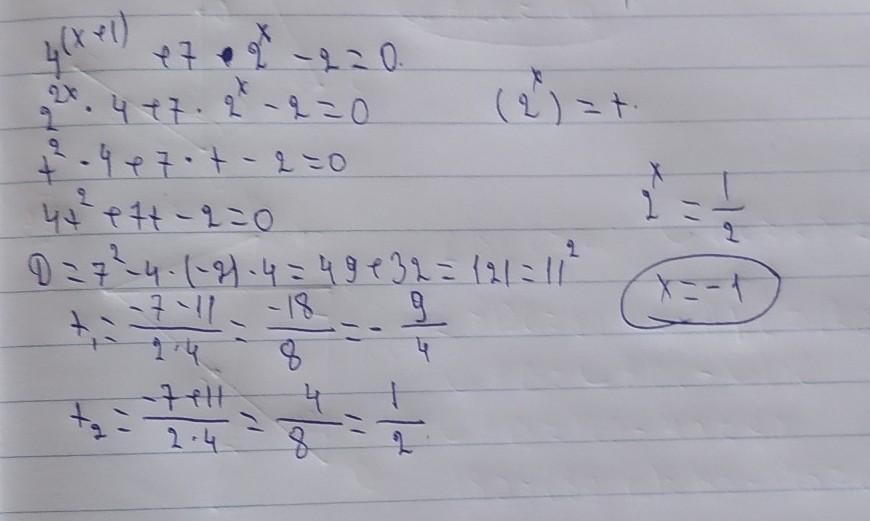 4^(x+1) + 7 • 2^x − 2 = 0.
2^2x · 4 + 7 · 2^x − 2 = 0
(2^x) = t.
t^2 · 4 + 7 · t − 2 = 0
4t^2 + 7t − 2 = 0
D = 7^2 − 4 · (−2) · 4 = 49 + 32 = 121 = 11^2
t₁ = (−7 − 11)/(2·4) = −18/8 = − 9/4
t₂ = (−7 + 11)/(2·4) = 4/8 = 1/2
2^x = 1/2
x = −1